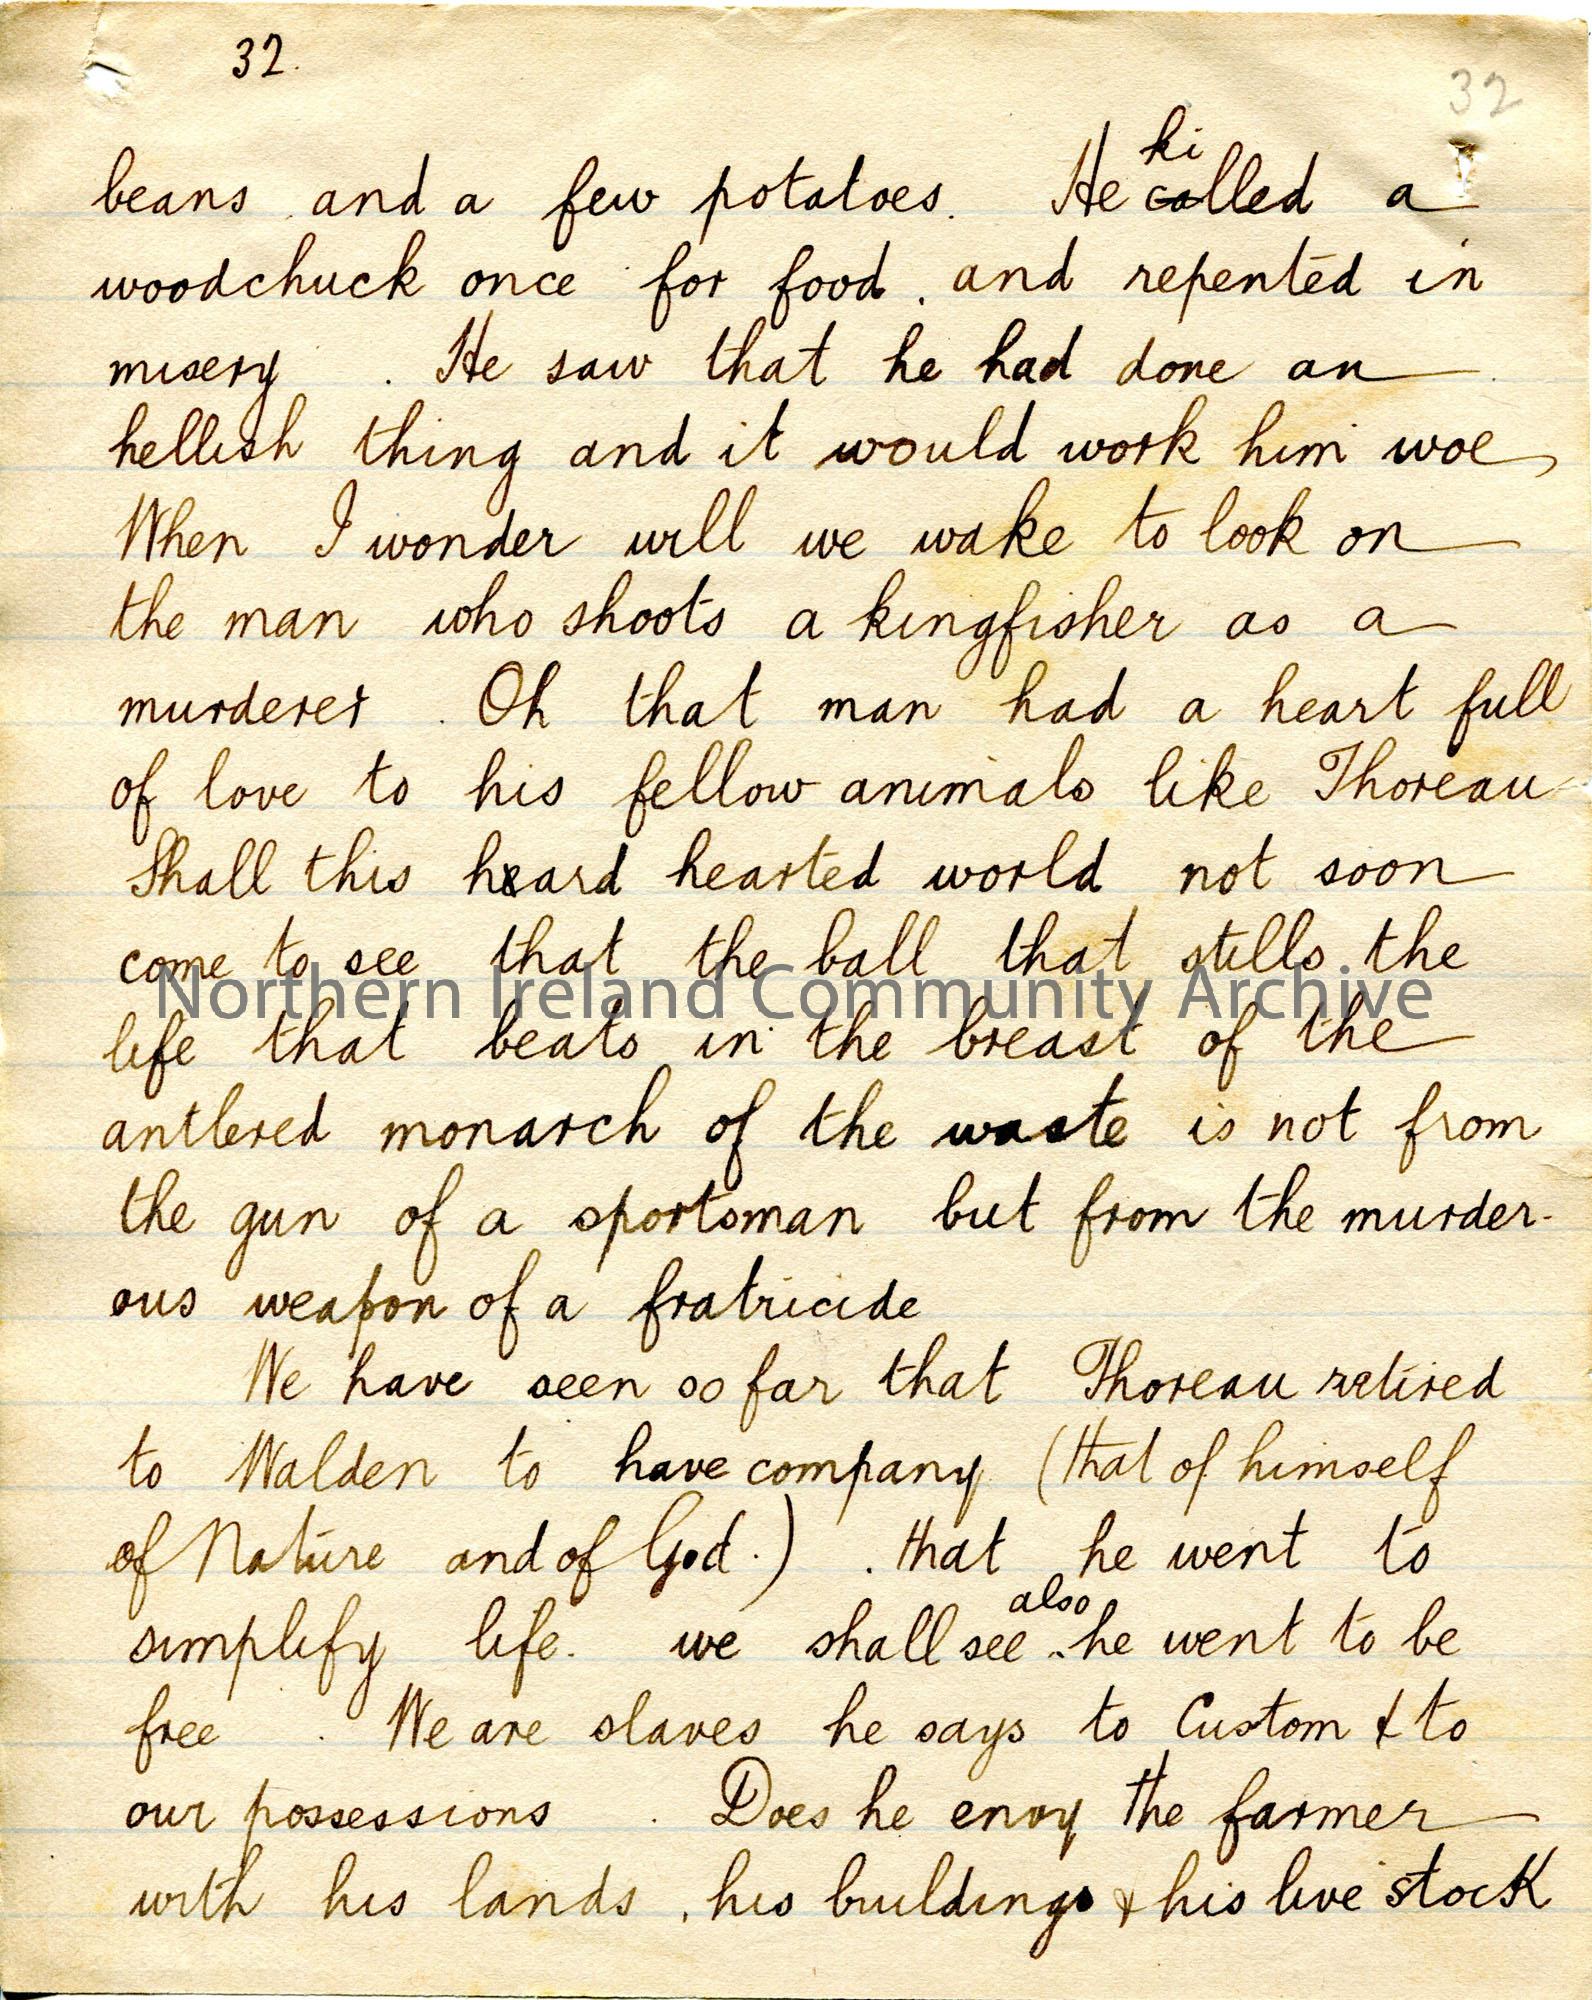 32.
32
beans and a few potatoes. He ki
called a
woodchuck once for food, and repented in
misery. He saw that he had done an
hellish thing and it would work him woe,
When I wonder will we wake to look on
the man who shoots a kingfisher as a
murderer. Oh that man had a heart full
of love to his fellow animals like Thoreau
Shall this hard hearted world not soon
come to see that the ball that stills the
Northern Ireland Community Archive
life that beats in the breast of the
antlered monarch of the waste is not from
the gun of a sportsman but from the murder-
ous weapon of a fratricide
We have seen so far that Thoreau retired
to Walden to have company (that of himself
of Nature and of God.). that he went to
simplify life. we shall see also he went to be
free. We are slaves he says to Custom & to
our possessions. Does he envy the farmer
with his lands, his buildings & his live stock